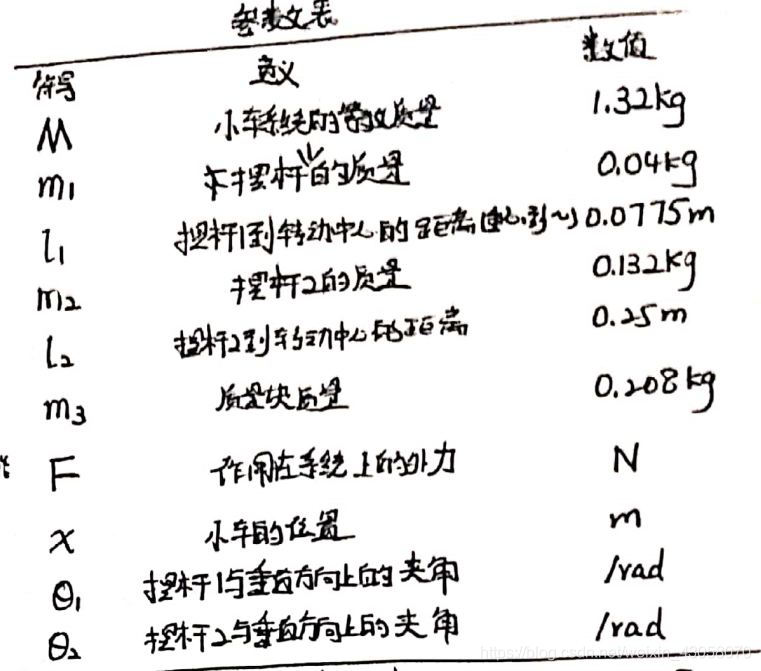 参数文表
符号 意义 数值
M 小车系统的等效质量 1.32kg
m1 摆杆1的质量 0.04kg
l1 摆杆1到转动中心的距离(质心到~) 0.0775m
m2 摆杆2的质量 0.132kg
l2 摆杆2到转动中心的距离 0.25m
m3 质量块质量 0.208kg
F 作用在系统上的外力 N
x 小车的位置 m
θ1 摆杆1与垂直方向上的夹角 /rad
θ2 摆杆2与垂直方向上的夹角 /rad